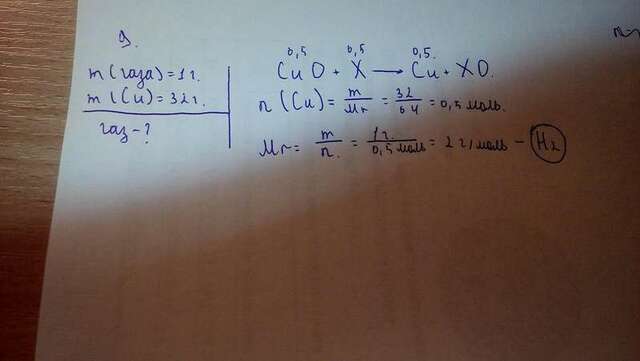 9.
m (газа) = 1 г.
m (Cu) = 32 г.
газ - ?
0,5 0,5 0,5.
CuO + X → Cu + XO.
n (Cu) = m/Mr = 32/64 = 0,5 моль.
Mr = m/n. = 1 г./0,5 моль = 2 г/моль - H₂